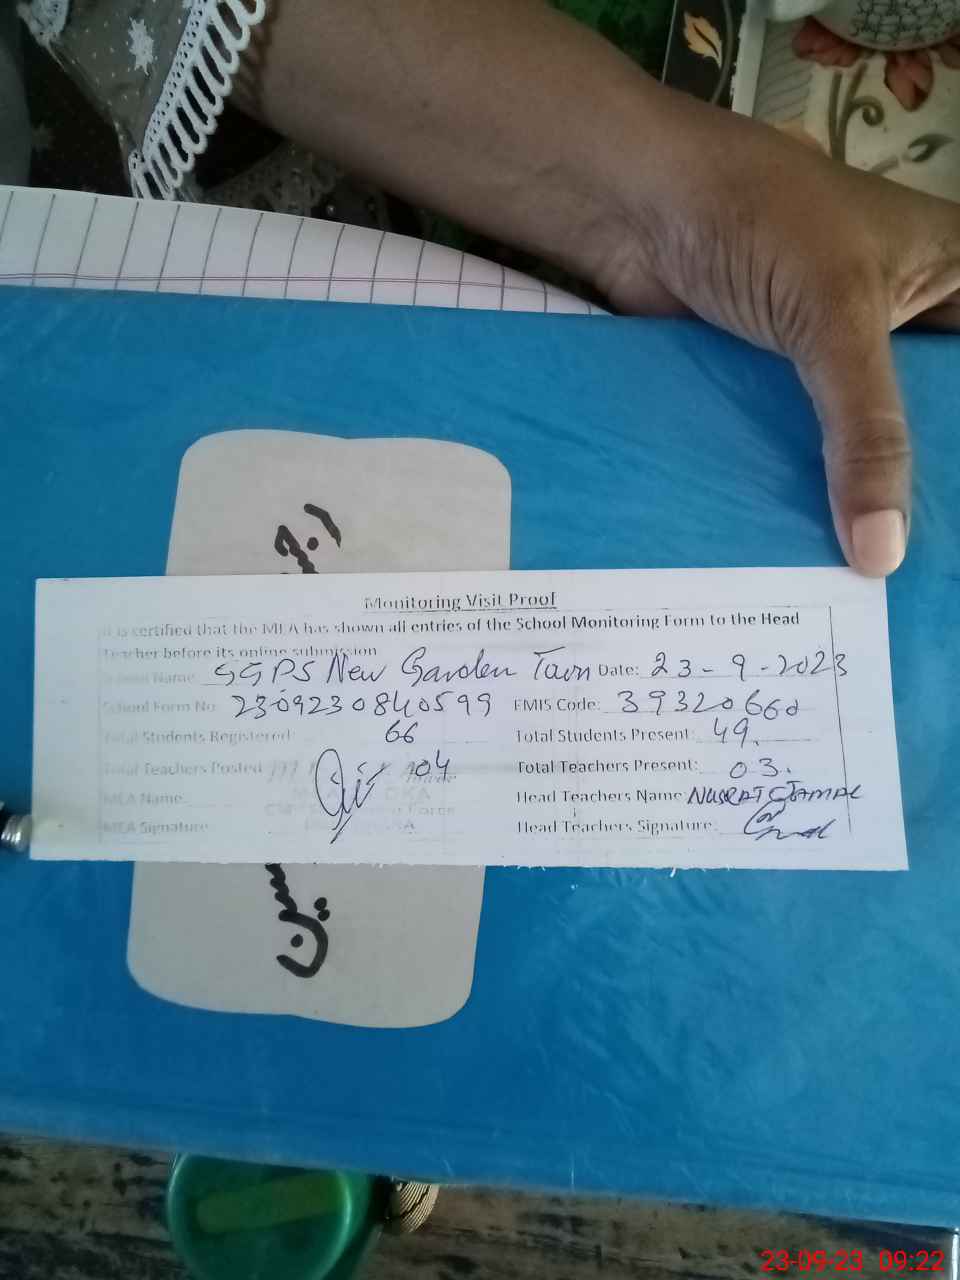 Monitoring Visit Proof
It is certified that the MEA has shown all entries of the School Monitoring Form to the Head
Teacher before its online submission
School Name: SGPS New Garden Town Date: 23-9-2023
School Form No: 2309230840599 EMIS Code: 39320660
Total Students Registered: 66 Total Students Present: 49.
Total Teachers Posted 04 Total Teachers Present: 03.
MEA Name: Head Teachers Name: NUSRAT JAMAL
MEA Signature Head Teachers Signature:
23-09-23 09:22